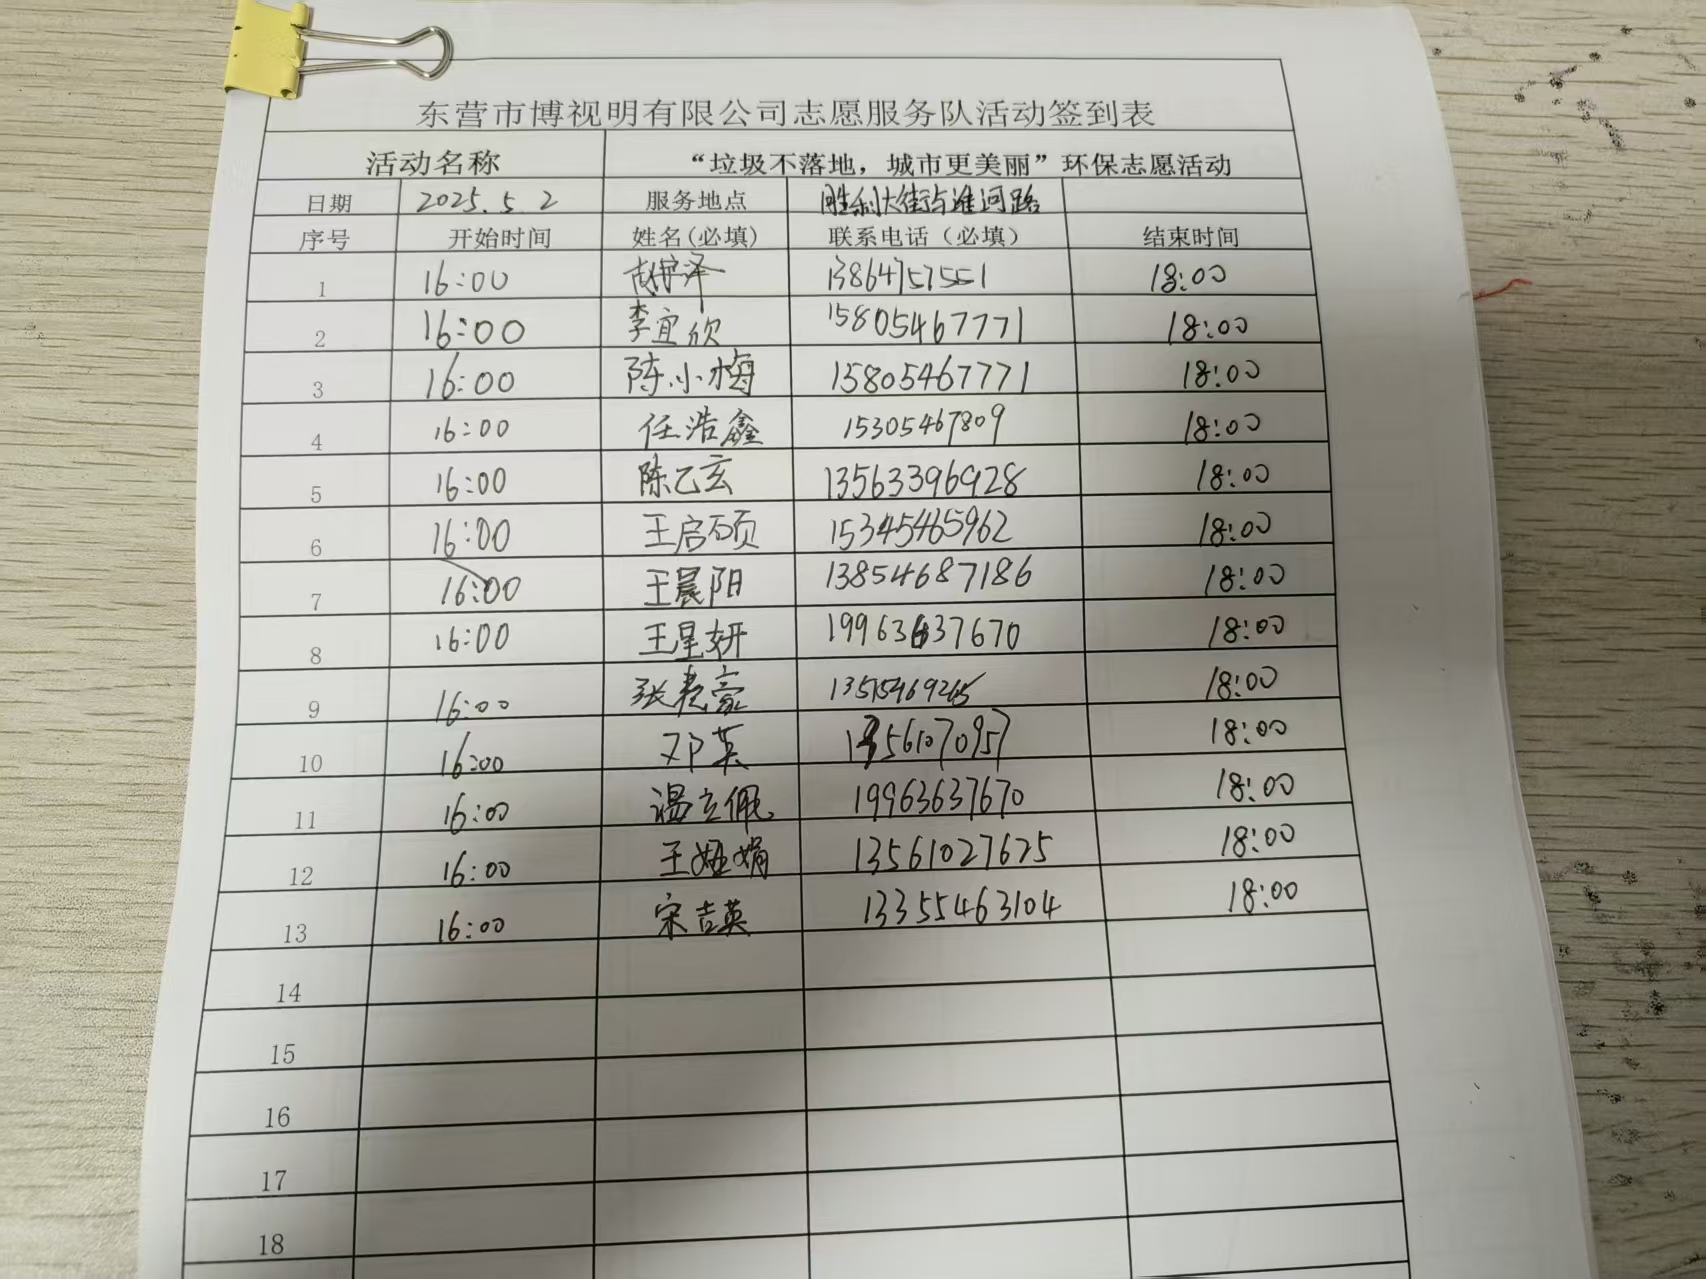 东营市博视明有限公司志愿服务队活动签到表
活动名称 “垃圾不落地，城市更美丽”环保志愿活动
日期 2025.5.2 服务地点 胜利大街与淮河路
序号 开始时间 姓名(必填) 联系电话（必填） 结束时间
1 16:00 13864757551 18:00
2 16:00 李宜欣 15805467771 18:00
3 16:00 陈小梅 15805467771 18:00
4 16:00 任浩鑫 15305467809 18:00
5 16:00 陈乙玄 13563396928 18:00
6 16:00 王启硕 15345465962 18:00
7 16:00 王晨阳 13854687186 18:00
8 16:00 王星妍 19963637670 18:00
9 16:00 18:00
10 16:00 邓英 18:00
11 16:00 温立佩 19963637670 18:00
12 16:00 13561027625 18:00
13 16:00 宋吉英 13355463104 18:00
14
15
16
17
18